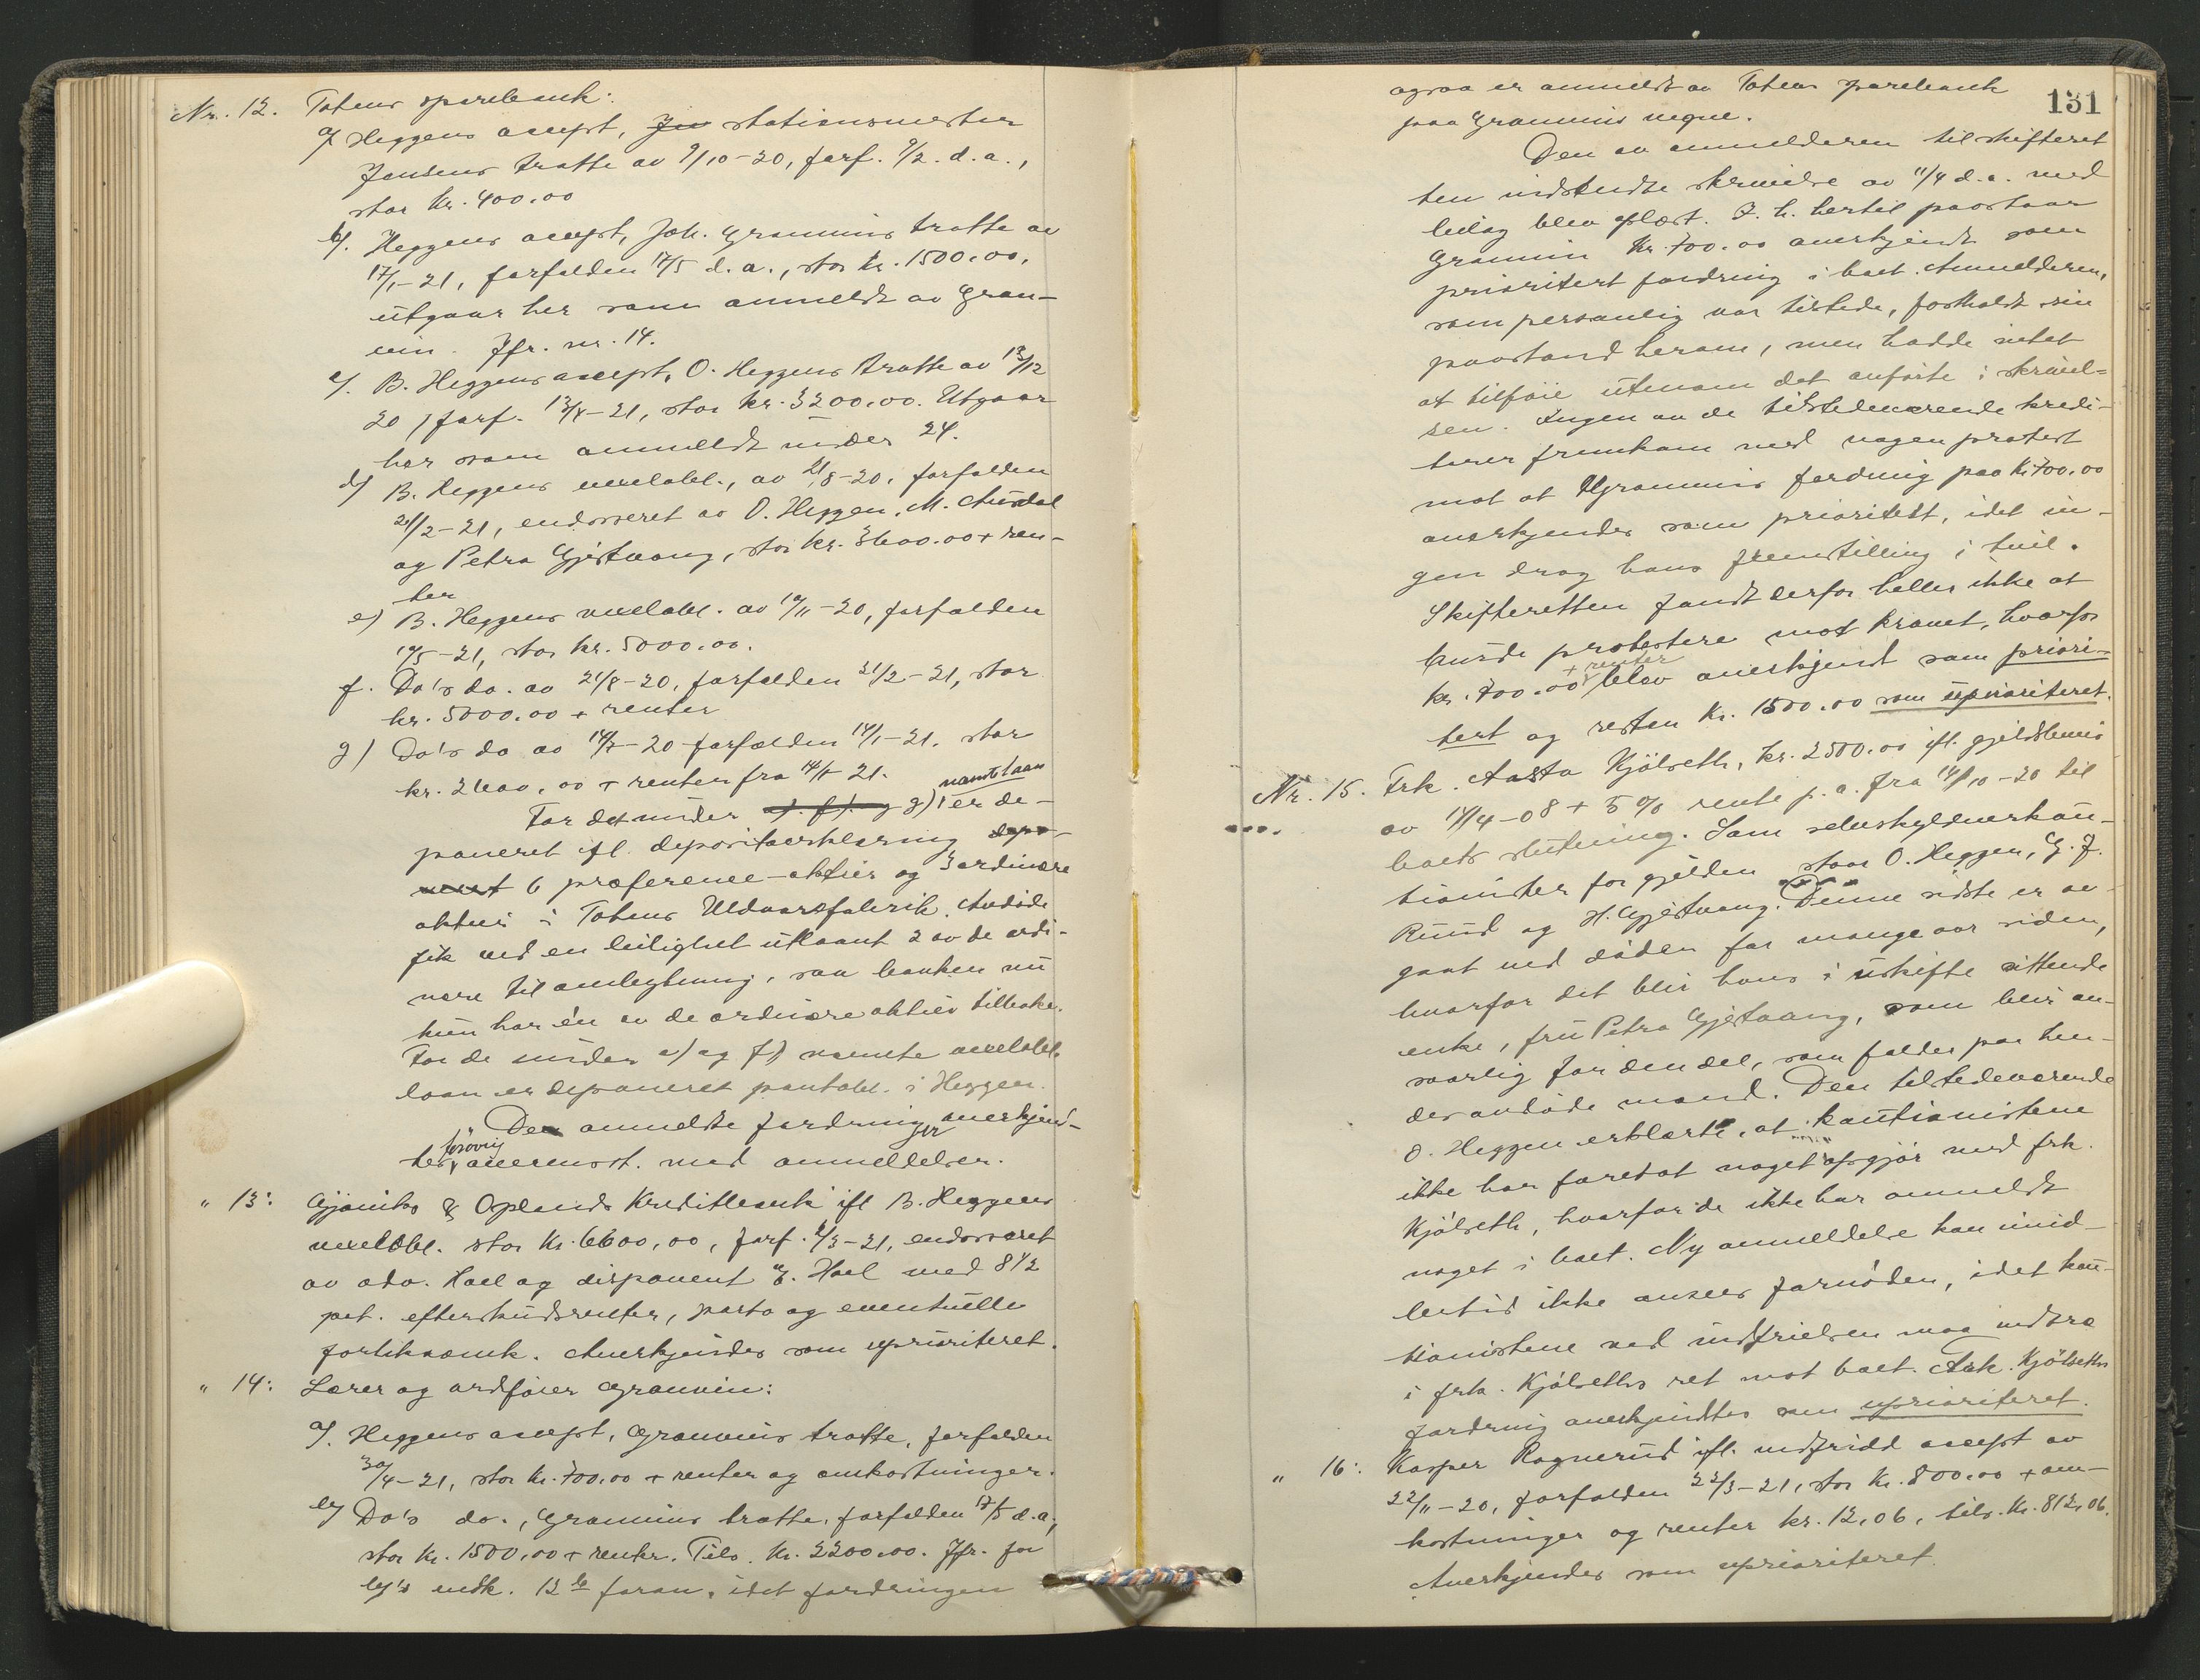 Nr. 12. Totens sparebank:
a/ Heggens accept, Jen stationsmester
Jensens tratte av 9/10-20, forf. 9/2. d. a.,
stor kr. 400.00
b/. Heggens accept, Joh. Grannins tratte av
17/1-21, forfalden 17/5 d. a., stor kr. 1500.00,
utgaar her som anmeldt av Gran-
nin. Jfr. nr. 14.
c/. B. Heggens accept, O. Heggens tratte av 13/12
20, forf. 13/4-21, stor kr. 3200.00. Utgaar
her som anmeldt under 24.
d/ B. Heggens vexelobl., av 21/8-20, forfalden
21/2-21, endosseret av O. Heggen, M. Aurdal
og Petra Gjestvang, stor kr. 3600.00 + ren-
ter
e) B. Heggens vexelobl. av 19/11-20, forfalden
19/5-21, stor kr. 5000.00.
f. Do's do. av 21/8-20, forfalden 21/2-21, stor
kr. 5000.00 + renter
g) Do's do av 14/7-20 forfalden 14/1-21. stor
kr. 2600,00 + renter fra 14/1-21.
For det under e). f). og g) nævnte laan er de-
poneret ifl. depositoerklæring depo-
neret 6 præference-aktier og 3 ordinære
aktier i Totens Uldvarefabrik. Avdøde
fik ved en leilighet utlaant 2 av de ordi-
nære til ombytning, saa banken nu
kun har én av de ordinære aktier tilbake.
For de under e) og f) nævnte vexelobl.
laan er deponeret pantobl. i Heggen.
Den anmeldte fordring er anerkjend-
tes forøvrig overensst. med anmeldelsen.
" 13: Gjøviks & Oplands Kreditbank ifl B. Heggens
vexelobl. stor kr. 6600,00, forf. 4/3-21, endosseret
av adv. Hoel og disponent E. Hoel med 8 1/2
pct. efterskudsrenter, porto og eventuelle
forliksomk. Anerkjendes som uprioriteret.
" 14: Lærer og ordfører Grannin:
a/. Heggens accept, Grannins tratte, forfalden
30/4-21, stor kr. 700.00 + renter og omkostninger.
b/ Do's do., Grannins tratte, forfalden 17/5 d. a.,
stor kr. 1500,00 + renter. Tils. kr. 2200.00. Jfr. for
b/'s vedk. 12 b foran, idet fordringen
131
ogsaa er anmeldt av Totens sparebank
paa Grannins vegne.
Den av anmelderen til skifteret
ten indsendte skrivelse av 11/4 d. a. med
bilag blev oplæst. I. h. hertil paastaar
Grannin kr. 700.00 anerkjendt som
prioritert fordring i boet. Anmelderen,
som personlig var tilstede, fastholdt sin
paastand herom, men hadde intet
at tilføie utenom det anførte i skrivel-
sen. Ingen av de tilstedeværende kredi-
torer fremkom med nogen protest
mot at Grannins fordring paa kr. 700.00
anerkjendes som prioritert, idet in-
gen drog hans fremstilling i tvil.
Skifteretten fandt derfor heller ikke at
burde protestere mot kravet, hvorfor
kr. 700.00 + renter blev anerkjendt som priori-
tert og resten kr. 1500.00 som uprioriteret.
Nr. 15. Frk. Aasta Kjölseth, kr. 2500.00 ifl. gjeldsbevis
av 14/4-08 + 5 % rente p. a. fra 14/10-20 til
boets slutning. Som selvskyldnerkau-
tionister for gjælden staar O. Heggen, G. J.
Ruud og H. Gjestvang. Denne sidste er av-
gaat ved døden for mange aar siden,
hvorfor det blir hans i uskifte sittende
enke, fru Petra Gjestvang, som blir an-
svarlig for den del, som falder paa hen-
des avdøde mand. Den tilstedeværende
O. Heggen erklærte, at kautionistene
ikke har foretat noget opgjør med frk.
Kjölseth, hvorfor de ikke har anmeldt
noget i boet. Ny anmeldelse kan imid-
lertid ikke ansees fornøden, idet kau-
tionistene ved indfrielsen maa indtræ
i frk. Kjölseths ret mot boet. Frk. Kjölseths
fordring anerkjendtes som uprioriteret.
" 16: Kasper Rognerud ifl. indfridd accept av
22/11-20, forfalden 22/3-21, stor kr. 800.00 + om-
kostninger og renter kr. 12,06, tils. kr. 812,06.
Anerkjendes som uprioriteret.